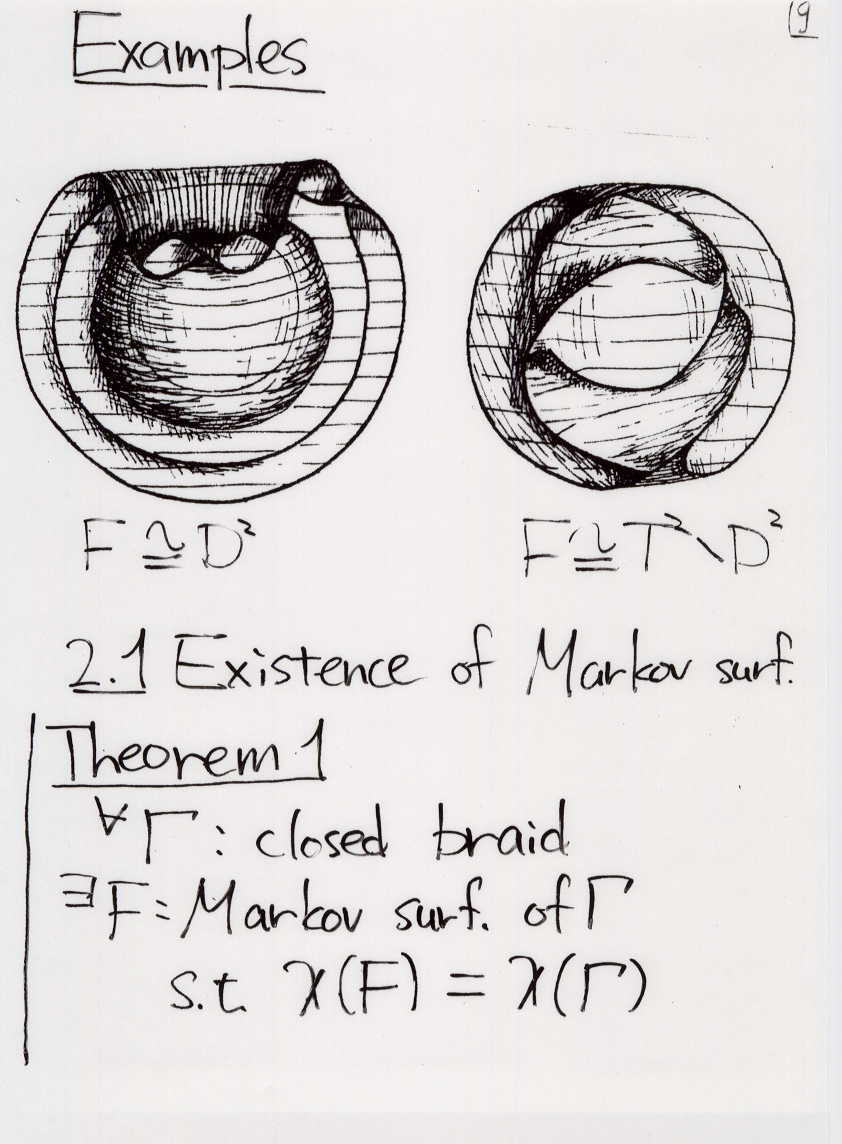 19
Examples
F ≅ D²
F ≅ T² \ D²
2.1 Existence of Markov surf.
Theorem 1
∀Γ : closed braid
∃F : Markov surf. of Γ
s.t. χ(F) = χ(Γ)